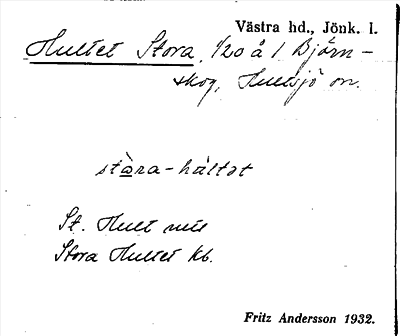 Västra hd., Jönk. l.
Hultet Stora, 1/20 å 1 Björn-
skog, Hultsjö sn.
stàra-håltət
St. Hult
Stora Hultet kb.
Fritz Andersson 1932.